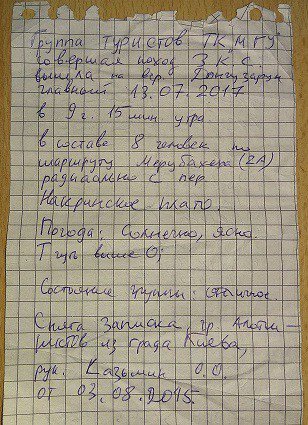 Группа туристов ТК "МГУ"
совершая поход 3 к.с.
вышла на вер.
главный 13.07.2017
в 9 г. 15 мин. утра
в составе 8 человек по
маршруту (2А)
радиально с пер
Накринское плато.
Погода: Солнечно, ясно.
Т гул выше 0;
Состояние группы: отличное
Снята Записка гр. Альпи-
нистов из града Киева,
рук. Казьмин О.О.
от 03.08.2015